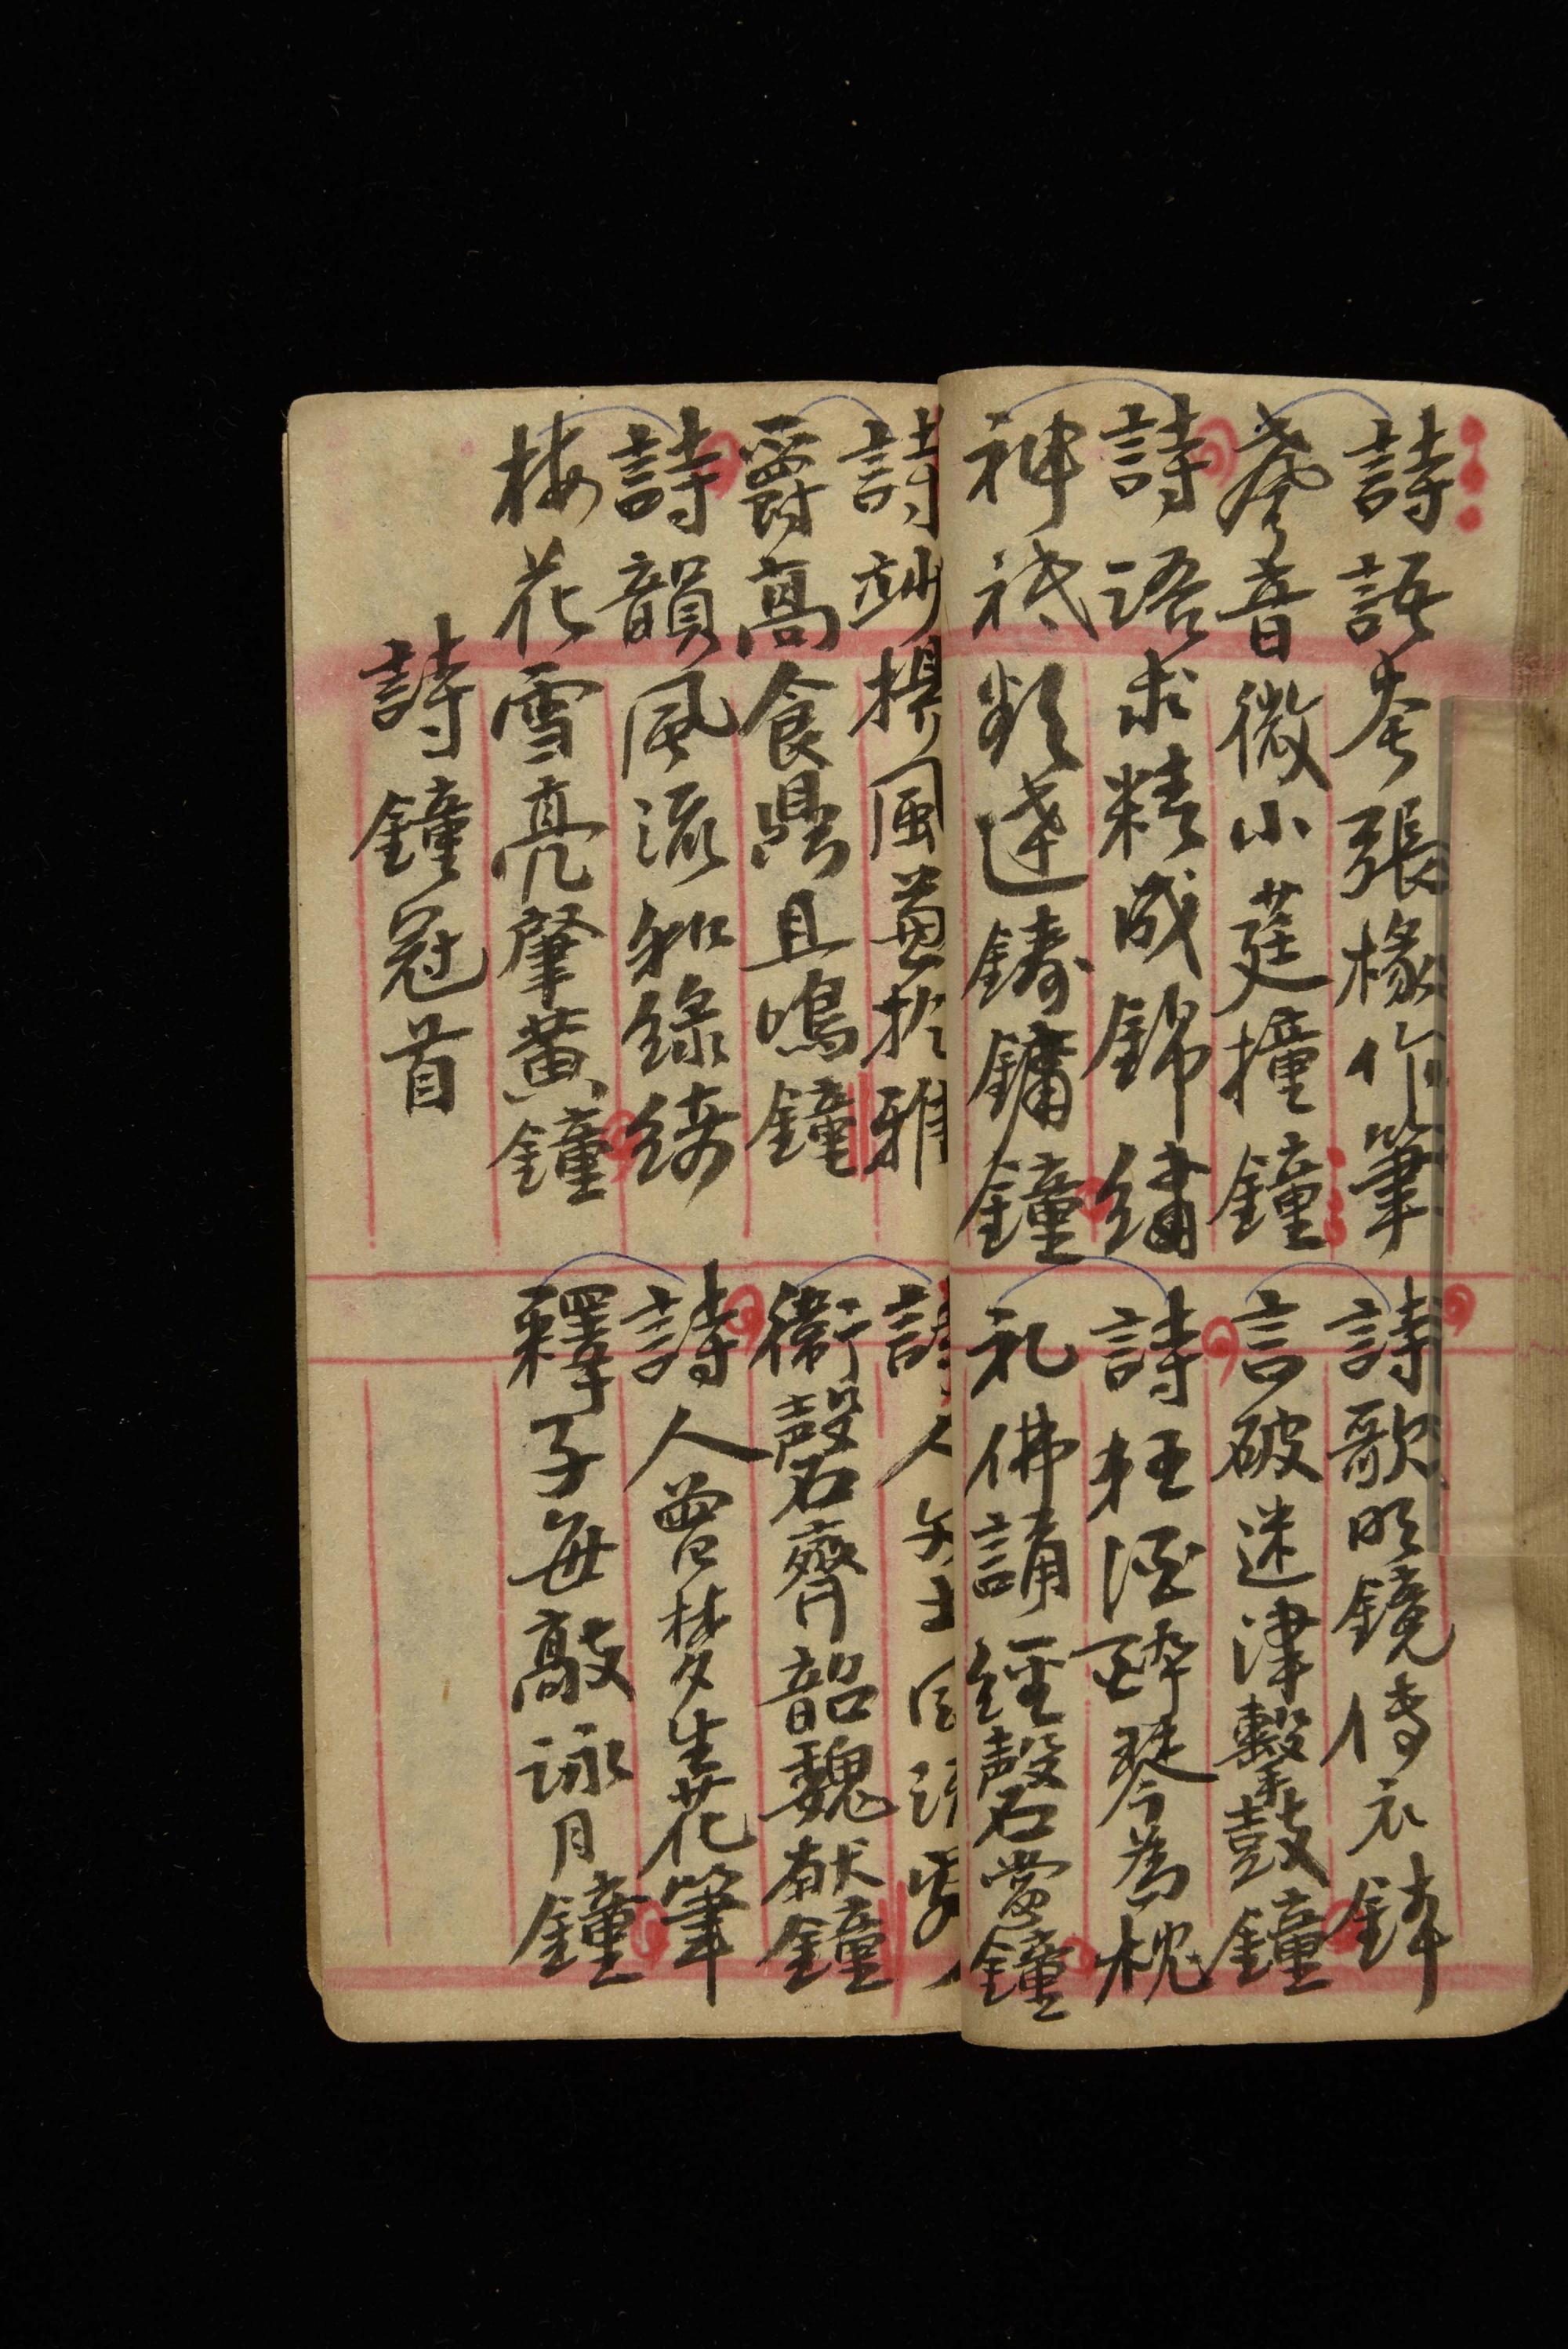 詩語夸張椽作筆
音微小莛撞鐘
詩語求精成錦繡
神祇類達鑄鏞鐘
詩歌明鏡傳衣鉢
言破迷津鼛鼓鐘
詩狂酒醉琴為枕
礼佛誦經磬當鐘
詩妙揚風兼扢雅
爵高食鼎且鳴鐘
詩韻風流和綠綺
梅花雪亮肇黃鐘
詩鐘冠首
詩人
衛磬齊韶魏献鐘
詩人曾梦生花筆
釋子每敲詠月鐘